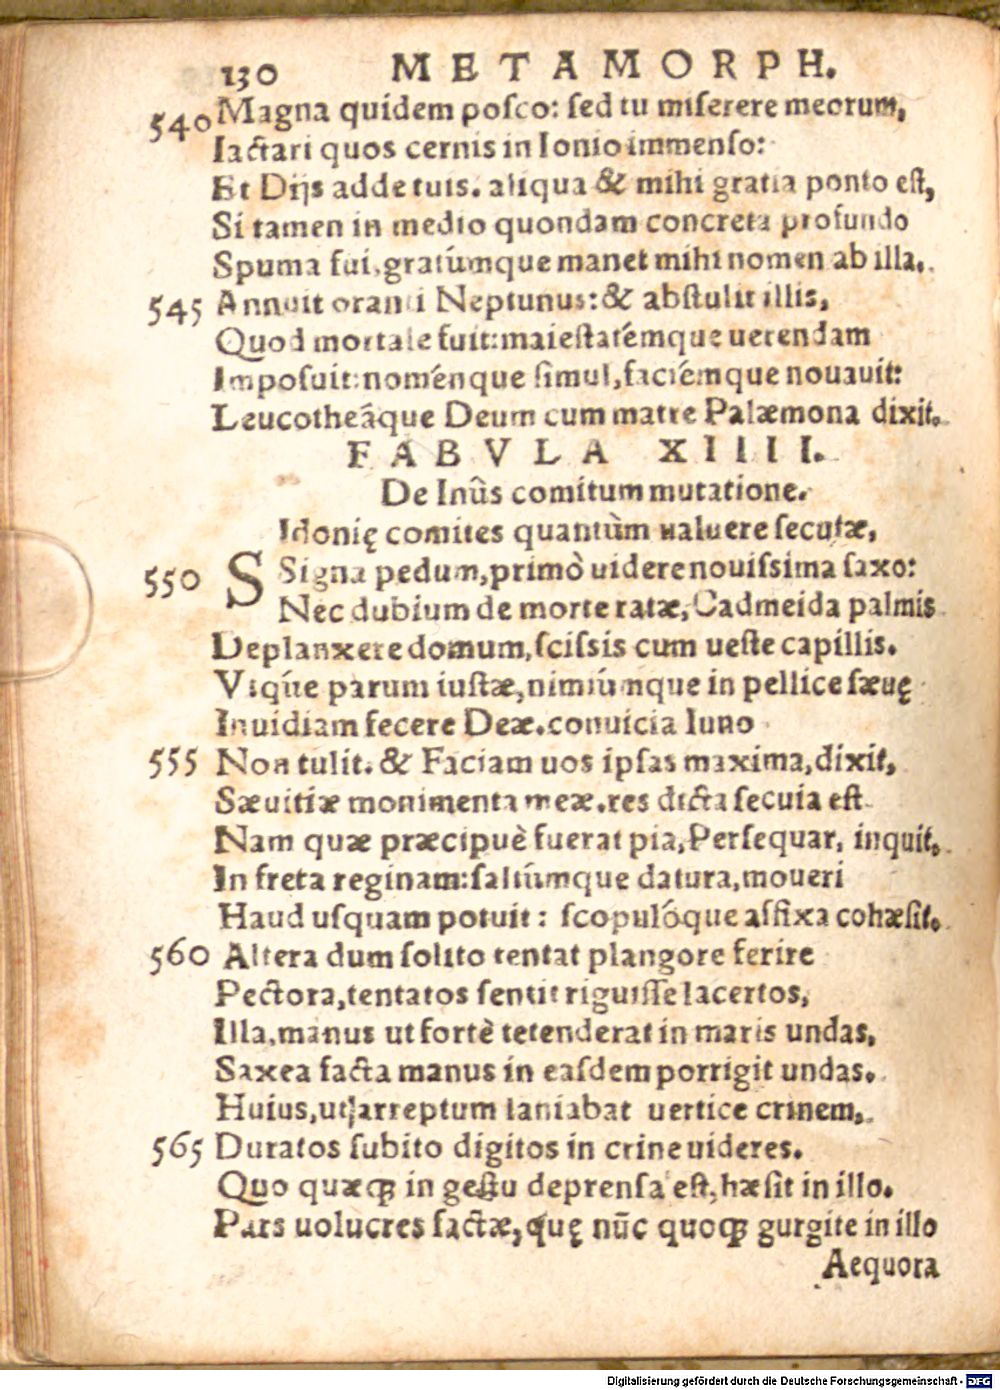 130 METAMORPH.
540 Magna quidem posco: sed tu miserere meorum,
Iactari quos cernis in Ionio immenso:
Et Dijs adde tuis. aliqua & mihi gratia ponto est,
Si tamen in medio quondam concreta profundo
Spuma fui, gratúmque manet mihi nomen ab illa.
545 Annuit oranti Neptunus: & abstulit illis,
Quod mortale fuit: maiestatémque uerendam
Imposuit: noménque simul, faciémque nouauit:
Leucotheâque Deum cum matre Palæmona dixit.
FABVLA XIIII.
De Inûs comitum mutatione.
SIdonię comites quantùm ualuere secutæ,
550 Signa pedum, primò uidere nouissima saxo:
Nec dubium de morte ratæ, Cadmeida palmis
Deplanxere domum, scissis cum ueste capillis.
Vtq́ue parum iustæ, nimiúmque in pellice sæuę
Inuidiam fecere Deæ. conuicia Iuno
555 Non tulit. & Faciam uos ipsas maxima, dixit,
Sæuitiæ monimenta meæ. res dicta secuta est
Nam quæ præcipuè fuerat pia, Persequar, inquit,
In freta reginam: saltúmque datura, moueri
Haud usquam potuit: scopulóque affixa cohæsit.
560 Altera dum solito tentat plangore ferire
Pectora, tentatos sentit riguisse lacertos,
Illa, manus ut fortè tetenderat in maris undas,
Saxea facta manus in easdem porrigit undas.
Huius, ut arreptum laniabat uertice crinem,
565 Duratos subito digitos in crine uideres.
Quo quæq; in gestu deprensa est, hæsit in illo.
Pars uolucres factæ, quę nūc quoq; gurgite in illo
Aequora
Digitalisierung gefördert durch die Deutsche Forschungsgemeinschaft - DFG